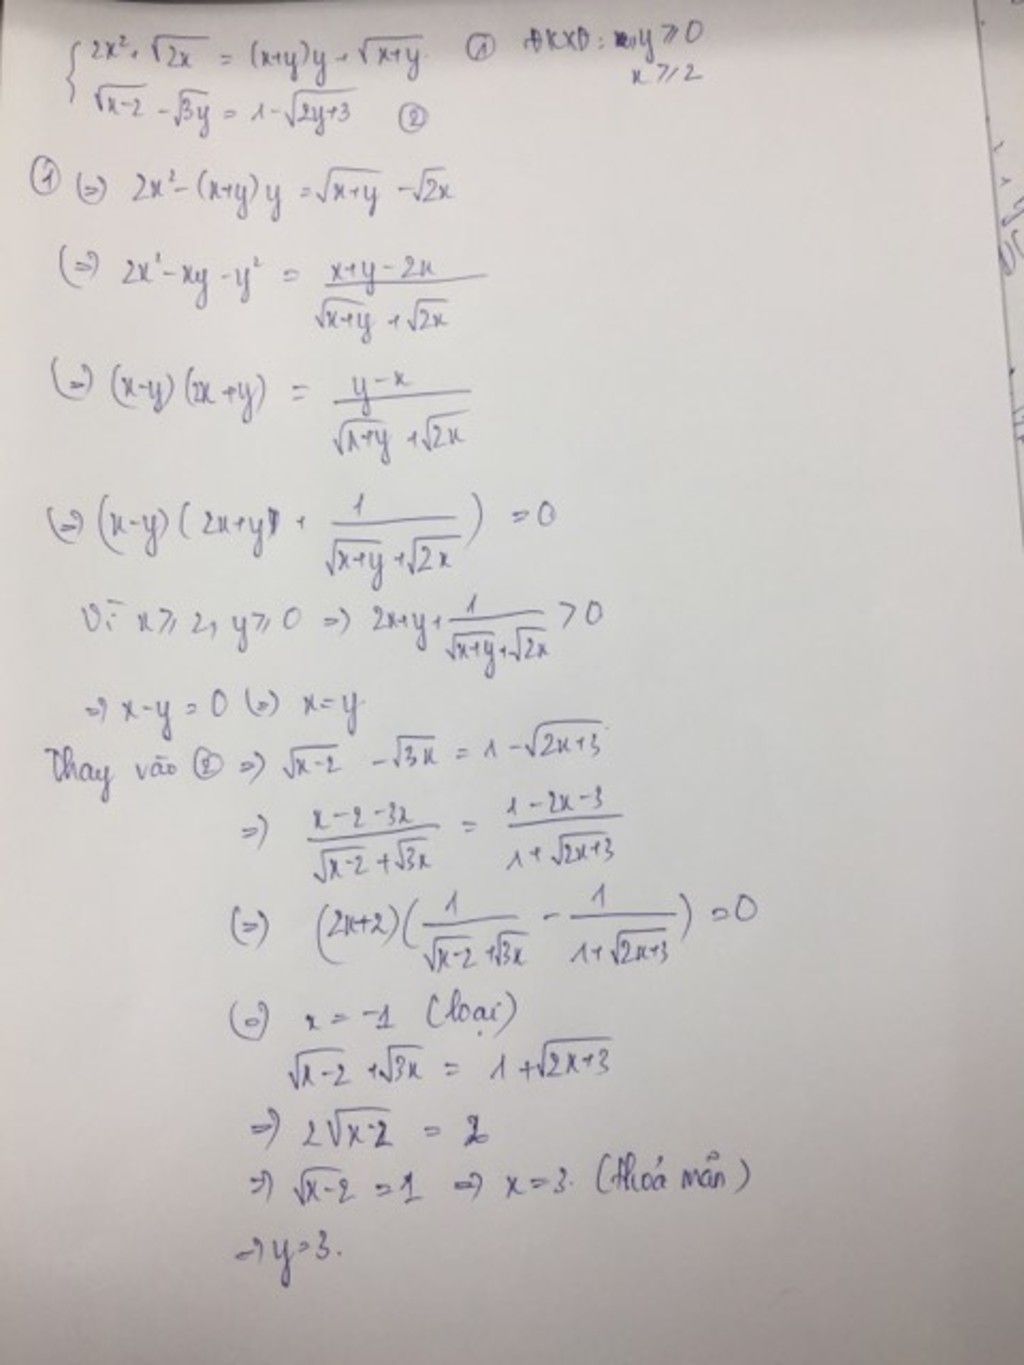 { 2x² + √(2x) = (x+y)y + √(x+y) ① ĐKXĐ: y ⩾ 0
x ⩾ 2
√(x-2) - √(3y) = 1 - √(2y+3) ②
① (=) 2x² - (x+y)y = √(x+y) - √(2x)
(=) 2x² - xy - y² = (x+y-2x)/(√(x+y) + √(2x))
(=) (x-y)(2x+y) = (y-x)/(√(x+y) + √(2x))
(=) (x-y)(2x+y + 1/(√(x+y) + √(2x))) = 0
Vì x ⩾ 2, y ⩾ 0 => 2x+y+ 1/(√(x+y) + √(2x)) > 0
=> x-y = 0 (=) x=y
Thay vào ② => √(x-2) - √(3x) = 1 - √(2x+3)
=> (x-2-3x)/(√(x-2) + √(3x)) = (1-2x-3)/(1+√(2x+3))
(=) (2x+2)(1/(√(x-2) + √(3x)) - 1/(1+√(2x+3))) = 0
(=) x = -1 (loại)
√(x-2) + √(3x) = 1 + √(2x+3)
=> 2√(x-2) = 2
=> √(x-2) = 1 => x=3. (thoả mãn)
=> y=3.